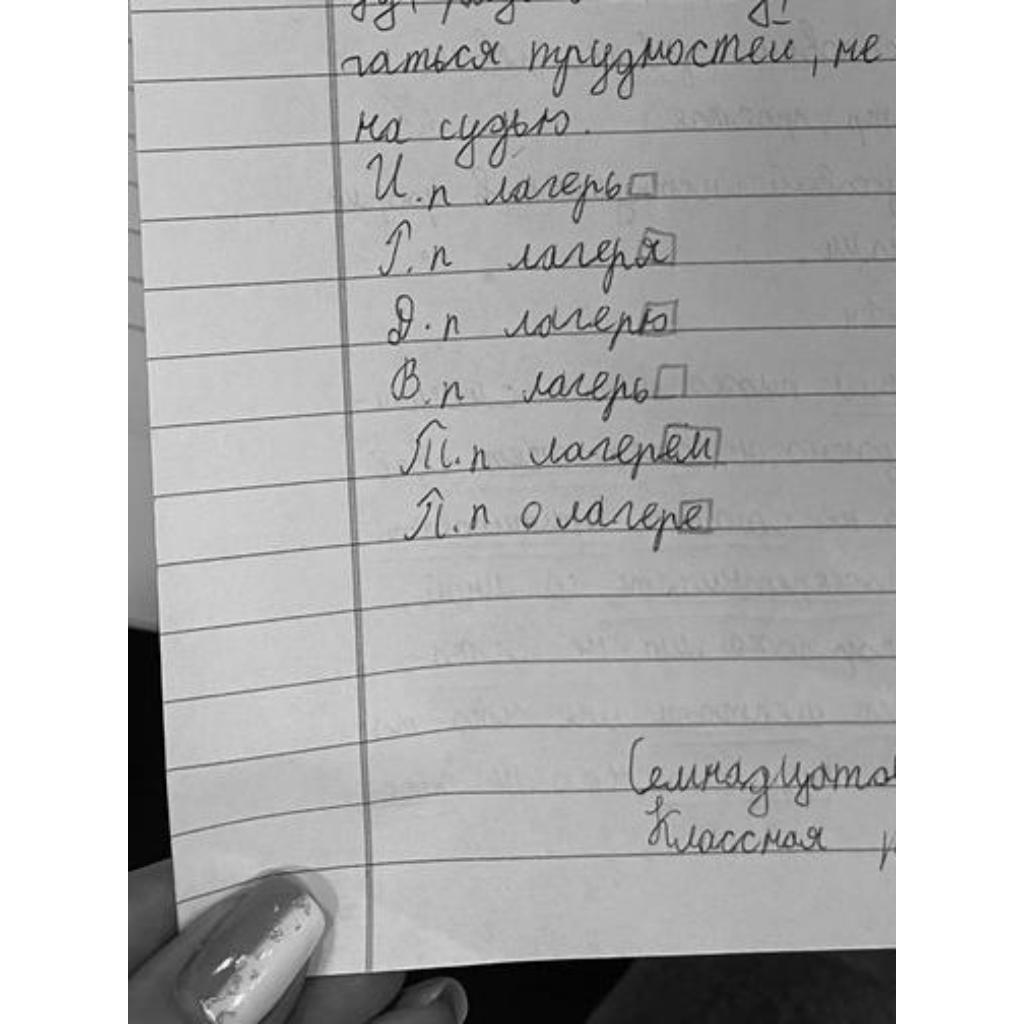 гаться трудностей, не
на судью.
И.п лагерь
Г.п лагеря
Д.п лагерю
В.п лагерь
Т.п лагерем
П.п о лагере
Семнадцато
Классная